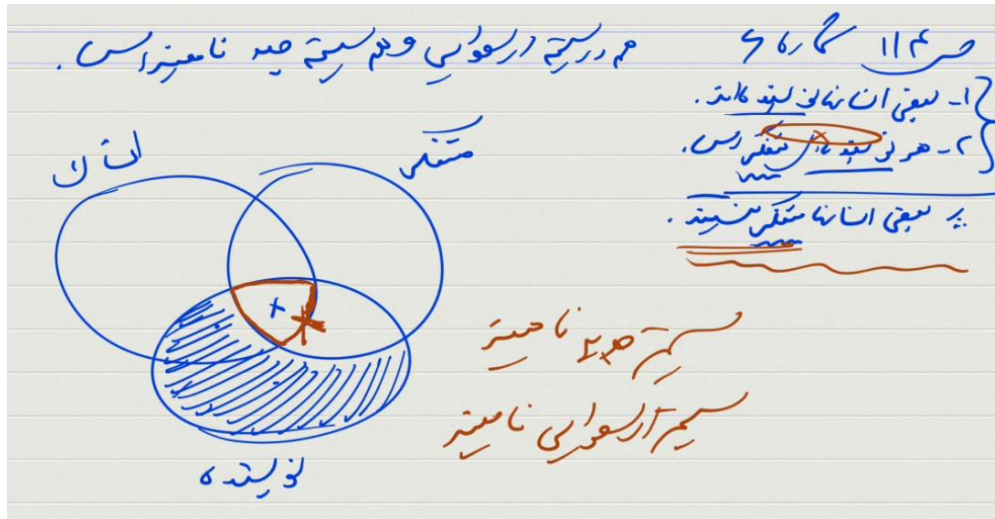 ص ۱۱۴ شماره ۶
هم در سیستم ارسطویی و هم سیستم جدید نامعتبر است.
۱- بعضی انسان‌ها نویسنده‌اند.
۲- هر نویسنده‌ای متفکر است.
∴ بعضی انسان‌ها متفکر نیستند.
انسان
متفکر
نویسنده
سیستم جدید نامعتبر
سیستم ارسطویی نامعتبر